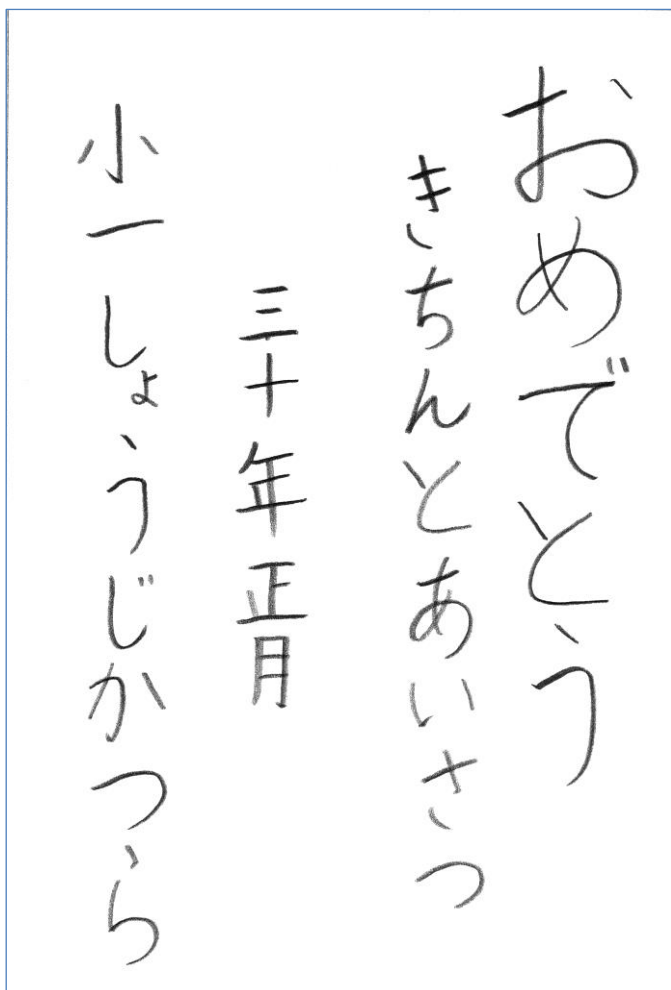 おめでとう
きちんとあいさつ
三十年正月
小一しょうじかつら